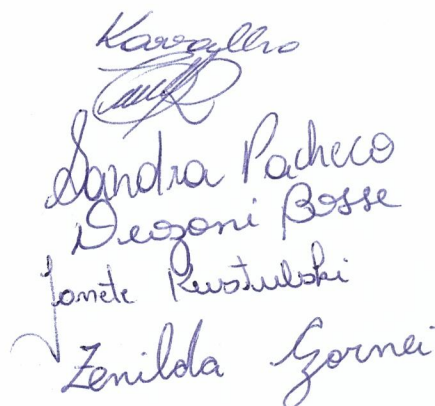 Karvallho
Sandra Pacheco
Deozoni Bosse
Janete Kustulski
Zenilda Gornei